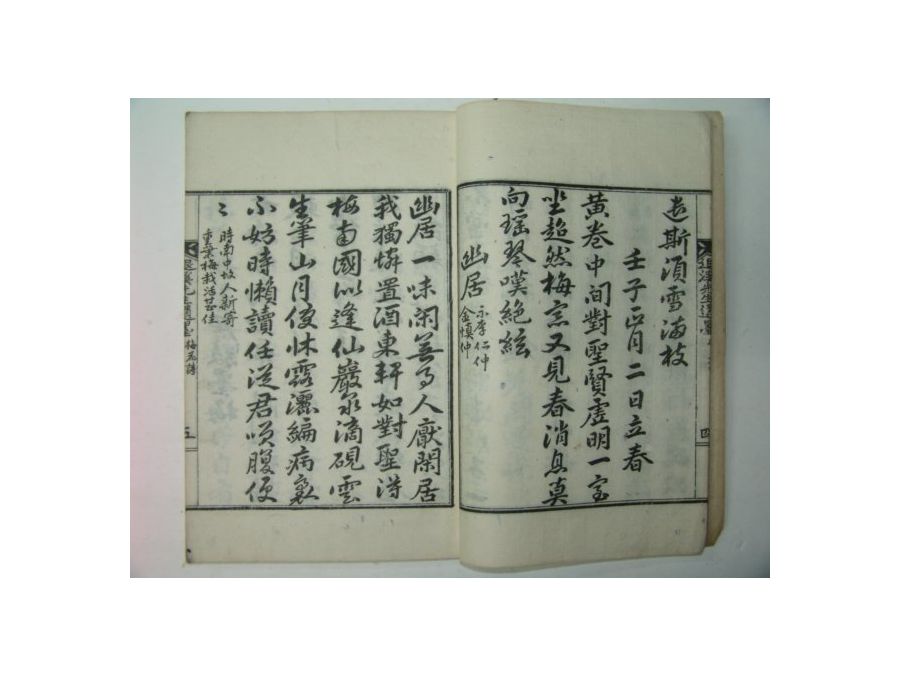 斯須雪滿枝
壬子正月二日立春
黃卷中間對聖賢虛明一室
坐超然梅窓又見春消息莫
向瑤琴嘆絶絃
幽居 示李仁仲
金愼仲
四
幽居一味閑無事人厭閑居
我獨憐置酒東軒如對聖得
梅南國似逢仙巖泉滴硯雲
生筆山月侵牀露灑編病裏
不妨時懶讀任從君笑腹便
〻 時南中故人新寄
重葉梅栽活甚佳
退溪先生遺墨 梅花詩
五